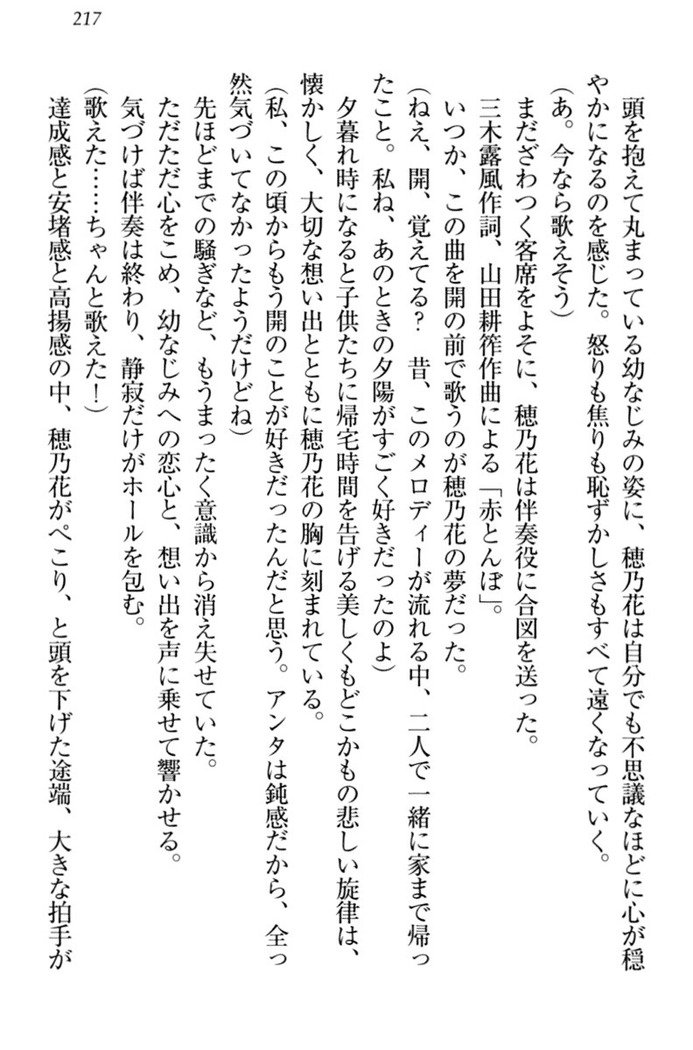 217
頭を抱えて丸まっている幼なじみの姿に、穂乃花は自分でも不思議なほどに心が穏
やかになるのを感じた。怒りも焦りも恥ずかしさもすべて遠くなっていく。
(あ。今なら歌えそう)
まだざわつく客席をよそに、穂乃花は伴奏役に合図を送った。
三木露風作詞、山田耕筰作曲による「赤とんぼ」。
いつか、この曲を開の前で歌うのが穂乃花の夢だった。
(ねえ、開、覚えてる? 昔、このメロディーが流れる中、二人で一緒に家まで帰っ
たこと。私ね、あのときの夕陽がすごく好きだったのよ)
夕暮れ時になると子供たちに帰宅時間を告げる美しくもどこかもの悲しい旋律は、
懐かしく、大切な想い出とともに穂乃花の胸に刻まれている。
(私、この頃からもう開のことが好きだったんだと思う。アンタは鈍感だから、全っ
然気づいてなかったようだけどね)
先ほどまでの騒ぎなど、もうまったく意識から消え失せていた。
ただただ心をこめ、幼なじみへの恋心と、想い出を声に乗せて響かせる。
気づけば伴奏は終わり、静寂だけがホールを包む。
(歌えた……ちゃんと歌えた!)
達成感と安堵感と高揚感の中、穂乃花がぺこり、と頭を下げた途端、大きな拍手が